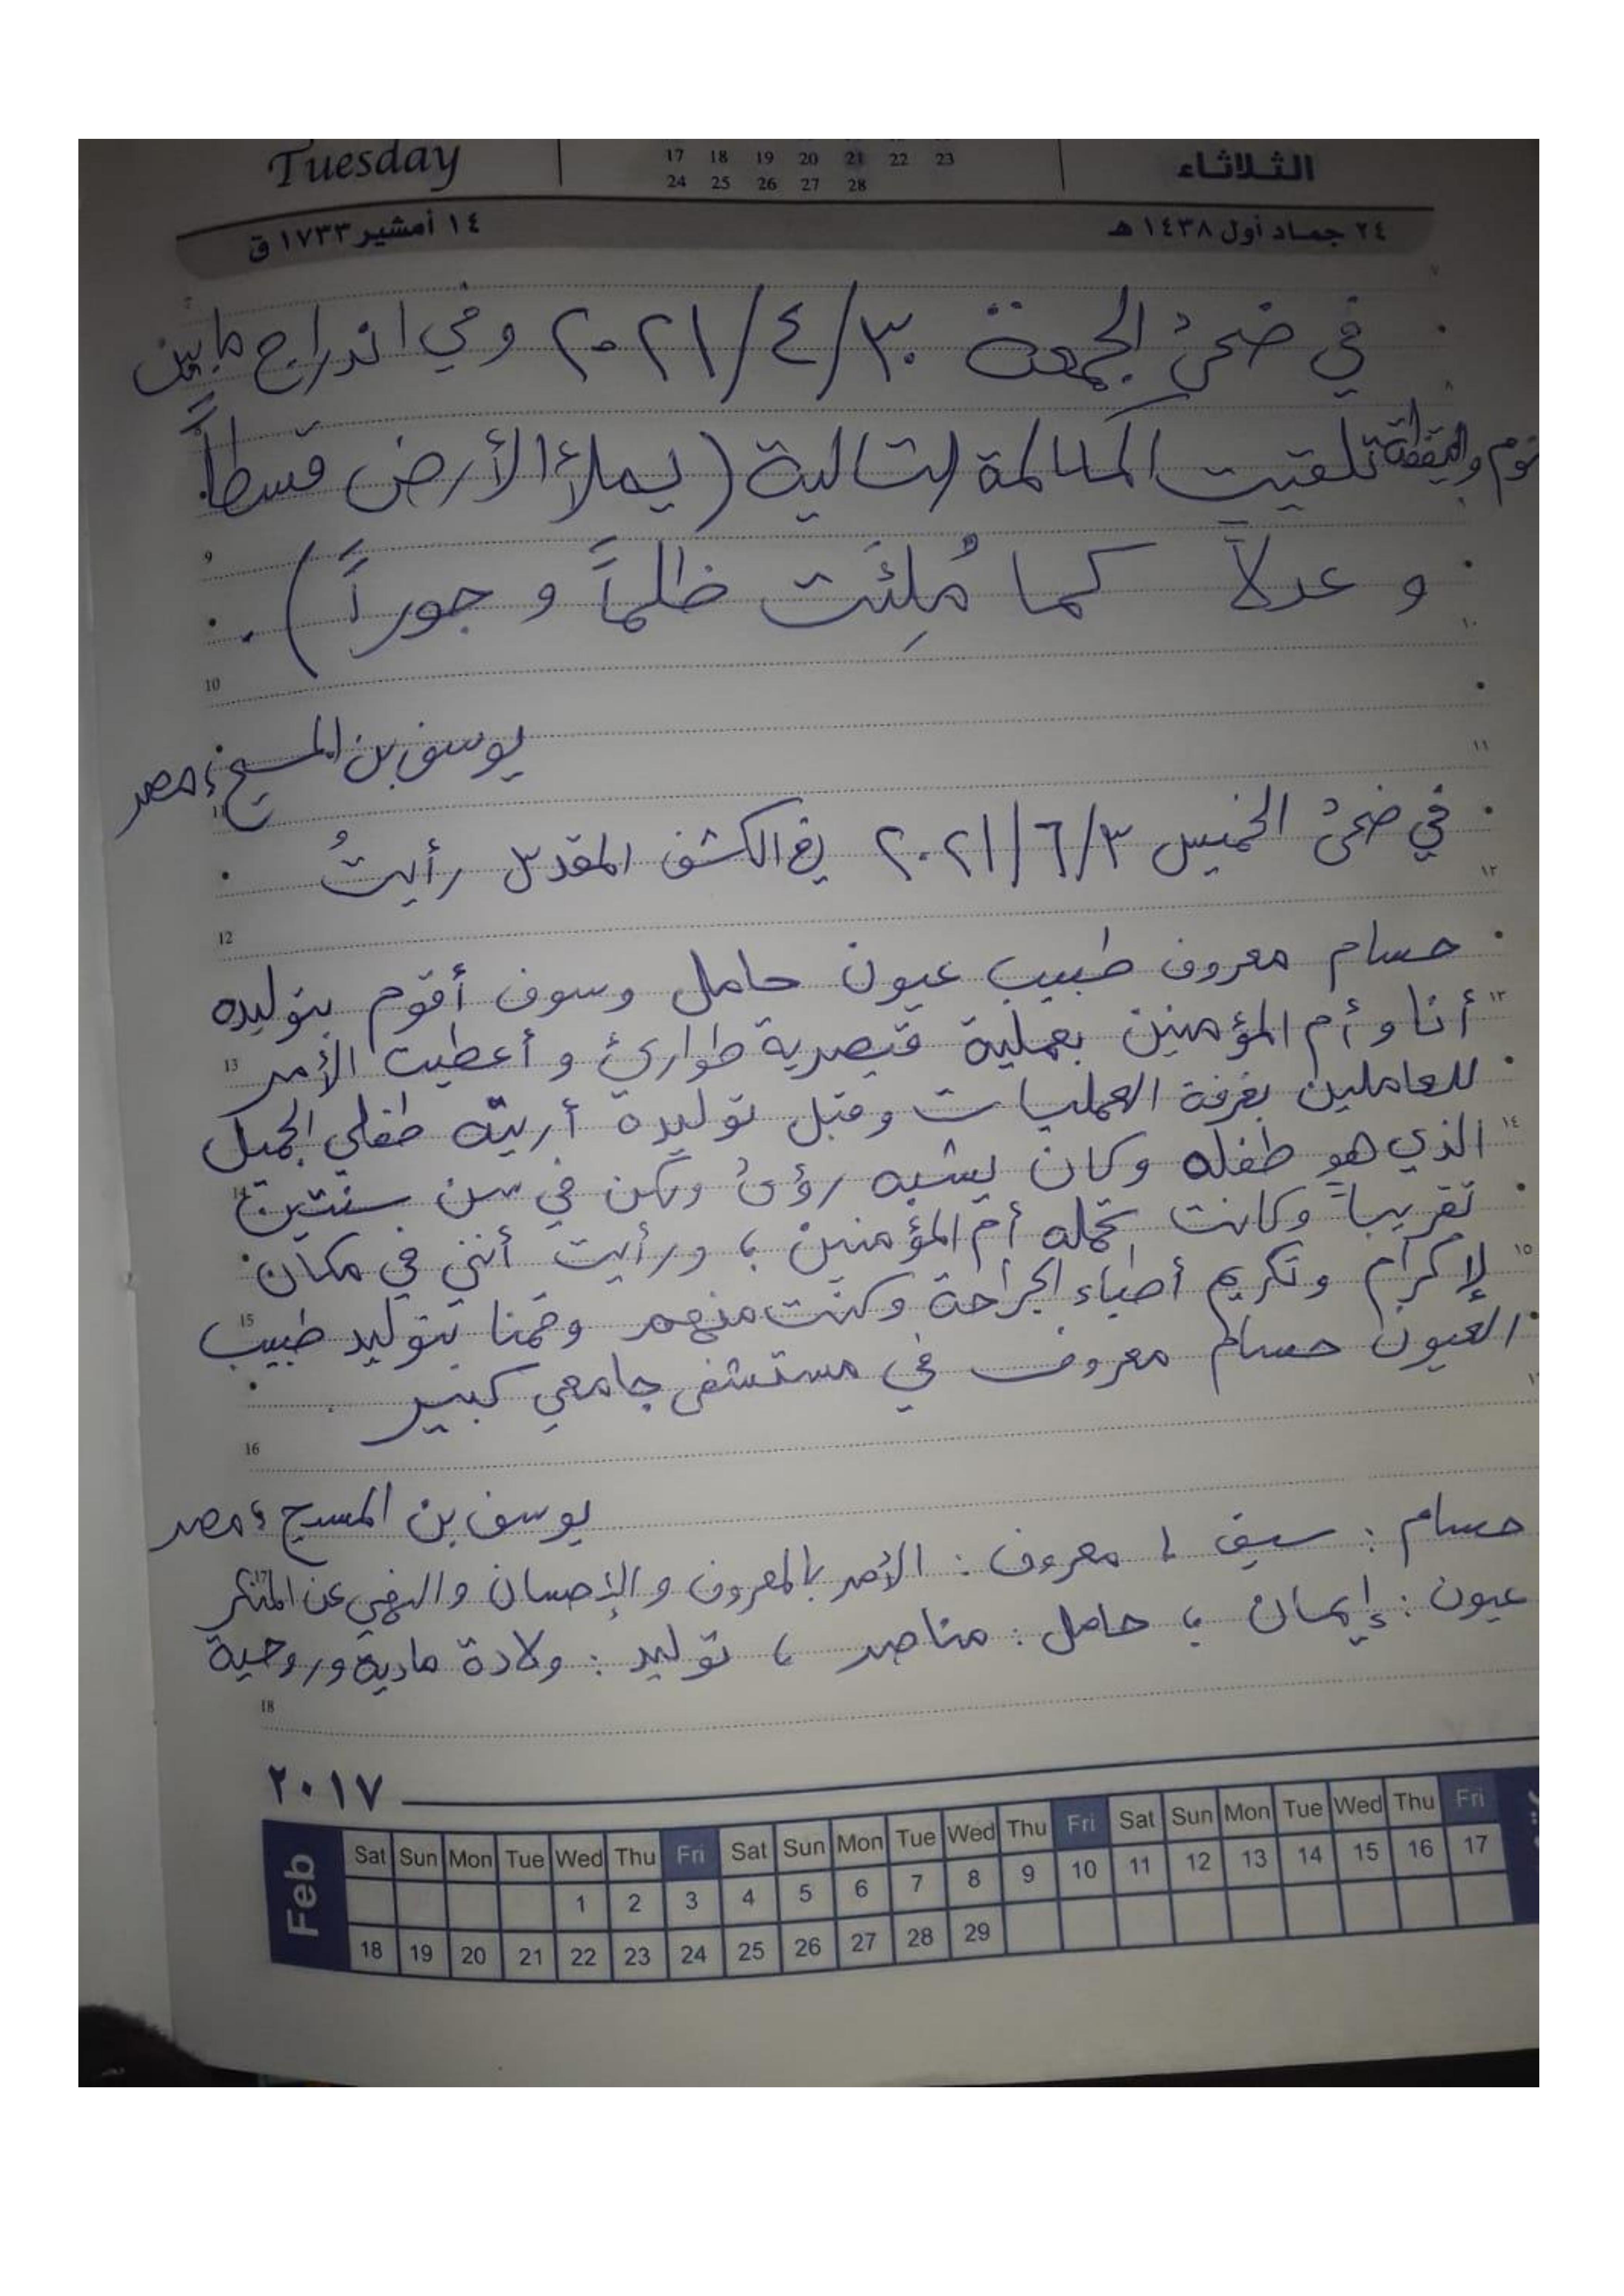 Tuesday
17 18 19 20 21 22 23
24 25 26 27 28
الثلاثاء
٢٤ جماد أول ١٤٣٨ هـ
١٤ أمشير ١٧٣٣ ق
في ضحىٰ الجمعة ٢٠٢١/٤/٣٠ وفي اندراج ما بين
نوم واليقظة تلقيت المكالمة التالية (يملأ الأرض قسطاً
وعدلاً كما مُلِئَت ظلماً و جوراً).
يوسف بن المسيح ؛ مصر
في ضحىٰ الخميس ٢٠٢١/٦/٣ في الكشف المقدس رأيتُ
حسام معروف طبيب عيون حامل وسوف أقوم بتوليده
أنا وأم المؤمنين بعملية قيصرية طوارئ و أعطيت الأمر
للعاملين بغرفة العمليات وقبل توليده أريته طفلي الجميل
الذي هو طفله وكان يشبه رؤىٰ ولكن في سن سنتين
تقريباً وكانت تحمله أم المؤمنين ؛ ورأيت أنني في مكان
لإكرام وتكريم أطباء الجراحة وكنت منهم وقمنا بتوليد طبيب
العيون حسام معروف في مستشفى جامعي كبير .
يوسف بن المسيح ؛ مصر
حسام : سيف ، معروف : الأمر بالمعروف و الإحسان والنهي عن المنكر
عيون : إيمان ؛ حامل : مناصر ، توليد : ولادة مادية وروحية
9
10
11
12
13
14
15
16
17
18
٢٠١٧
Feb
Sat Sun Mon Tue Wed Thu Fri Sat Sun Mon Tue Wed Thu Fri Sat Sun Mon Tue Wed Thu Fri
1 2 3 4 5 6 7 8 9 10 11 12 13 14 15 16 17
18 19 20 21 22 23 24 25 26 27 28 29